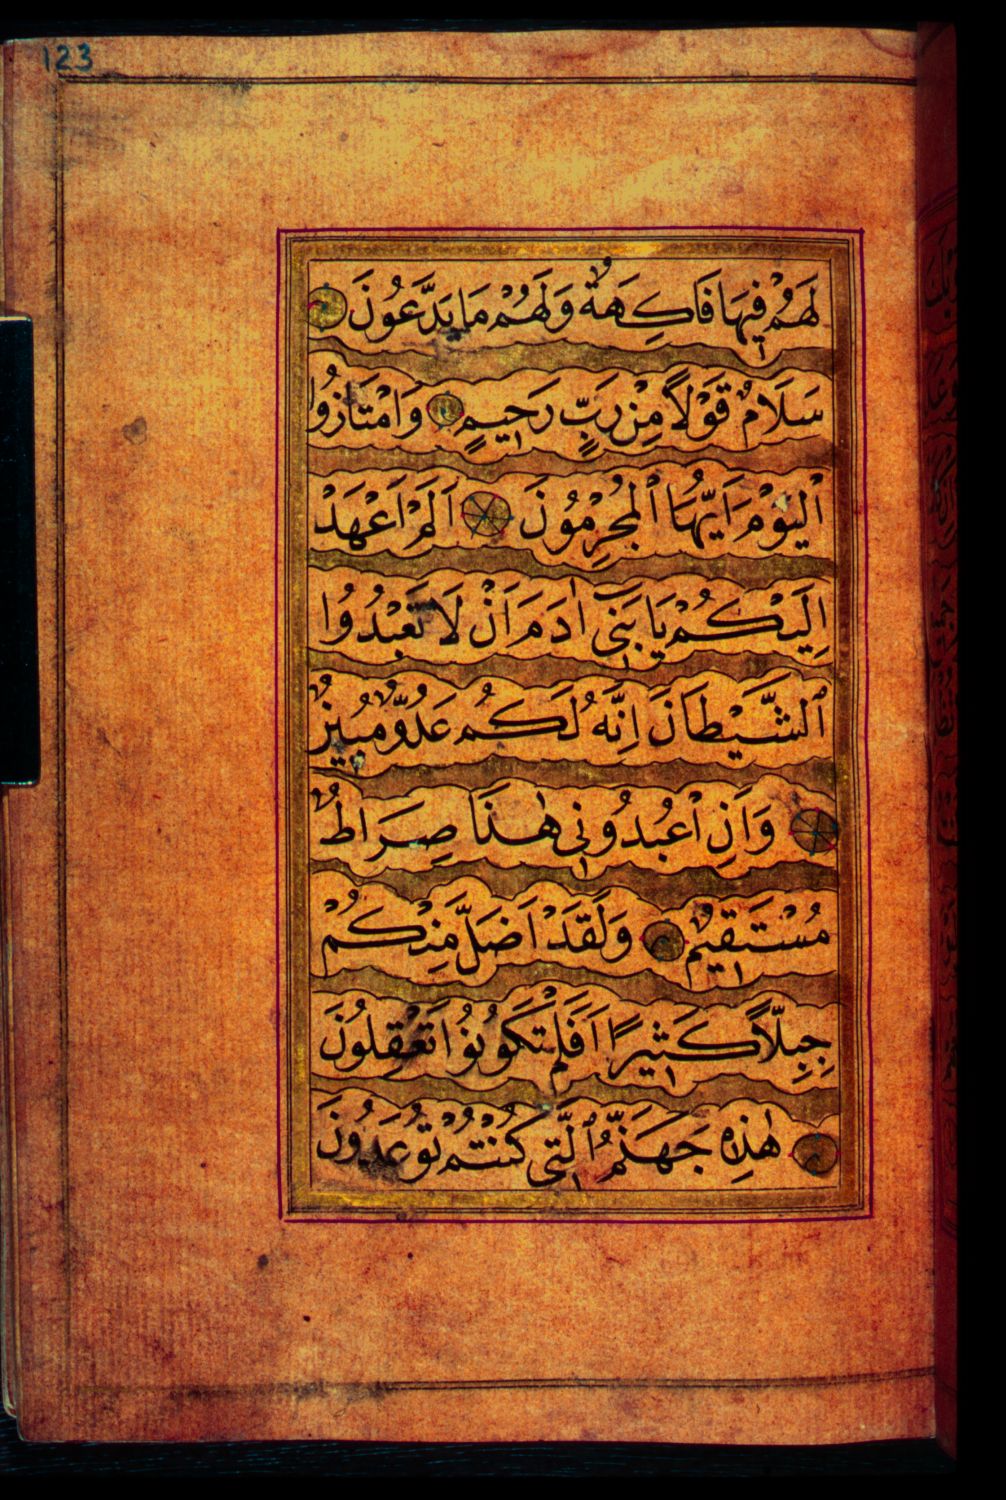 123
لَهُمْ فِيهَا فَاكِهَةٌ وَلَهُمْ مَا يَدَّعُونَ
سَلَامٌ قَوْلاً مِنْ رَبٍّ رَحِيمٍ وَامْتَازُوا
ٱلْيَوْمَ اَيُّهَا ٱلْمُجْرِمُونَ اَلَمْ اَعْهَدْ
اِلَيْكُمْ يَا بَنِى اٰدَمَ اَنْ لَا تَعْبُدُوا
ٱلشَّيْطَانَ اِنَّهُ لَكُمْ عَدُوٌّ مُبِينٌ
وَاَنِ اعْبُدُونِى هٰذَا صِرَاطٌ
مُسْتَقِيمٌ وَلَقَدْ اَضَلَّ مِنْكُمْ
جِبِلّاً كَثِيرًا اَفَلَمْ تَكُونُوا تَعْقِلُونَ
هٰذِهِ جَهَنَّمُ ٱلَّتِى كُنْتُمْ تُوعَدُونَ